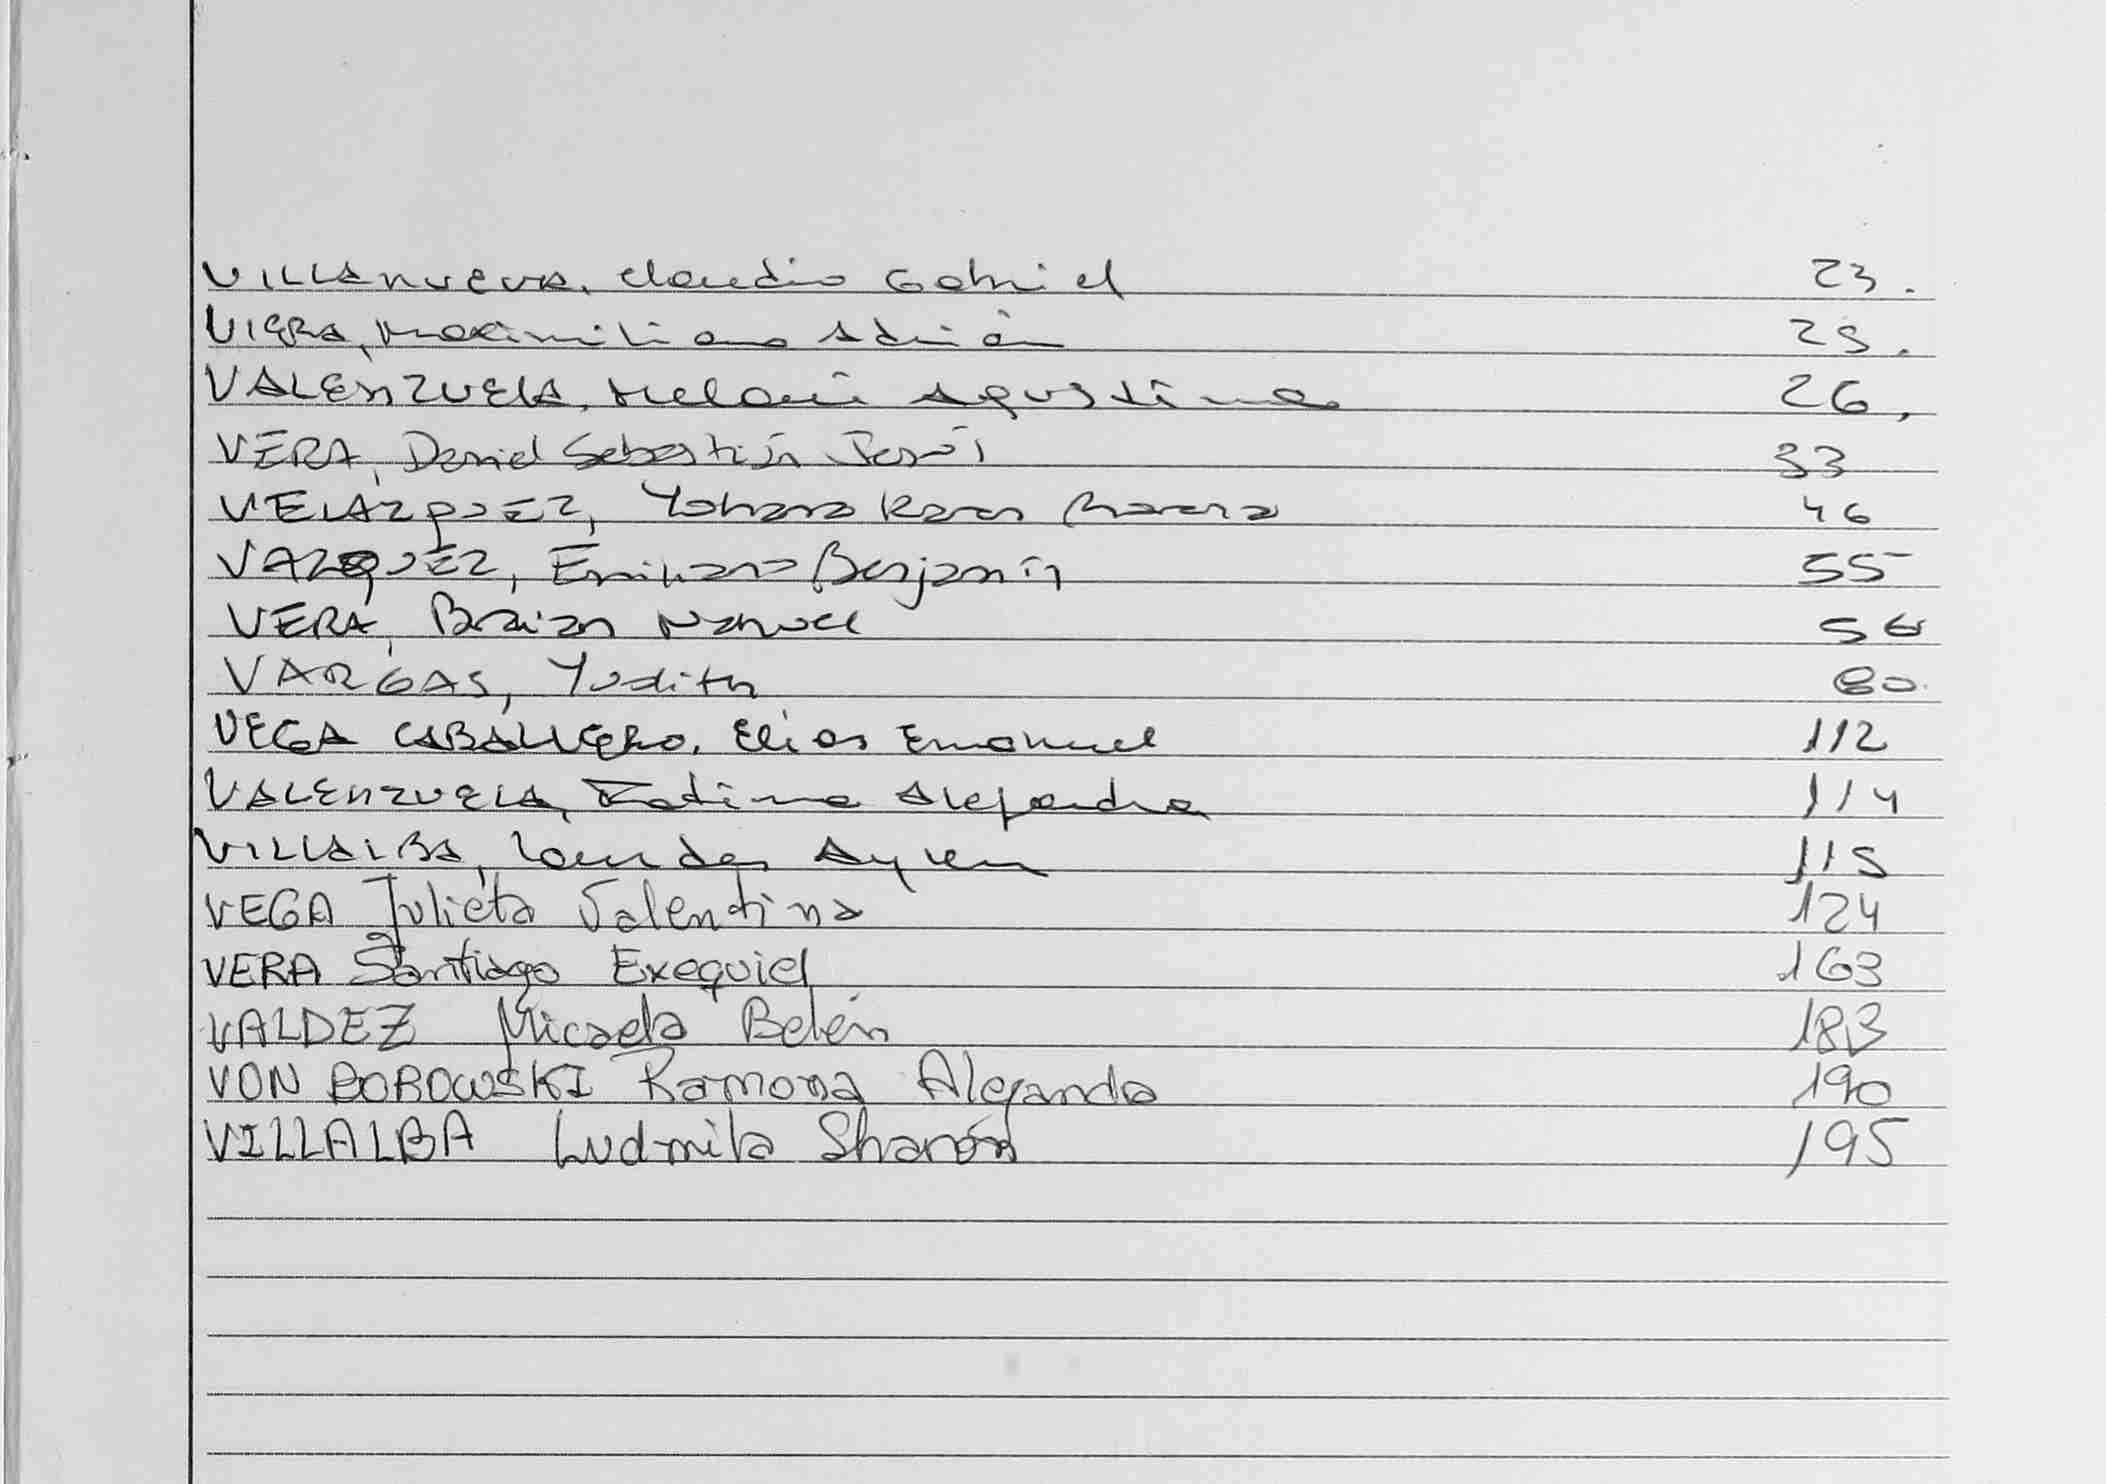 VILLANUEVA, Claudio Gabriel 23.
VIERA, Maximiliano Adrián 25.
VALENZUELA, Melani Agustina 26.
VERA, Daniel Sebastián Jesús 33
VELÁZQUEZ, Yohana Karen 46
VAZQUEZ, Emiliano Benjamín 55
VERA, Braian Nahuel 56
VARGAS, Yudith 80.
VEGA CABALLERO, Elias Emanuel 112
VALENZUELA, Fatima Alejandra 114
VILLALBA, Lourdes Aylen 115
VEGA Julieta Valentina 124
VERA Santiago Exequiel 163
VALDEZ Micaela Belén 183
VON BOROWSKI Ramona Alejanda 190
VILLALBA Ludmila Sharón 195